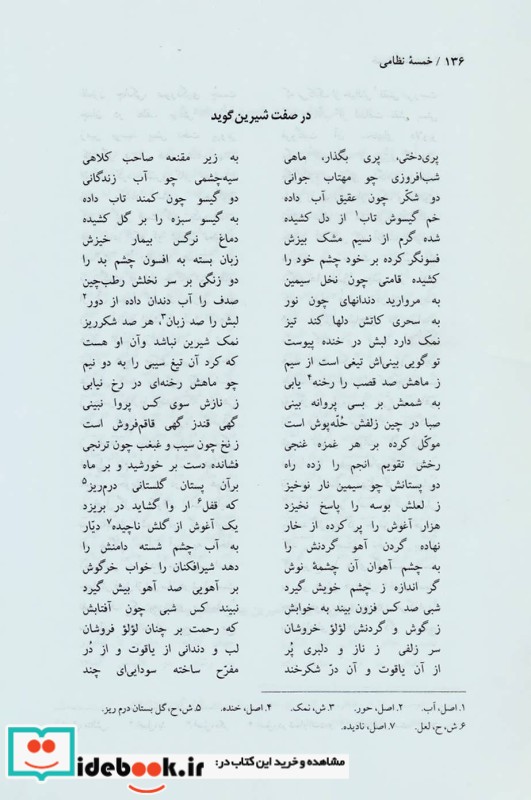 ۱۳۶ / خمسهٔ نظامی
در صفت شیرین گوید
پری‌دختی، پری بگذار، ماهی به زیر مقنعه صاحب کلاهی
شب‌افروزی چو مهتاب جوانی سیه‌چشمی چو آب زندگانی
دو شکّر چون عقیق آب داده دو گیسو چون کمند تاب داده
خم گیسوش تاب۱ از دل کشیده به گیسو سبزه را بر گل کشیده
شده گرم از نسیم مشک بیزش دماغ نرگس بیمار خیزش
فسونگر کرده بر خود چشم خود را زبان بسته به افسون چشم بد را
کشیده قامتی چون نخل سیمین دو زنگی بر سر نخلش رطب‌چین
به مروارید دندانهای چون نور صدف را آب دندان داده از دور۲
به سحری کاتش دلها کند تیز لبش را صد زبان۳، هر صد شکرریز
نمک دارد لبش در خنده پیوست نمک شیرین نباشد وآن او هست
تو گویی بینی‌اش تیغی است از سیم که کرد آن تیغ سیبی را به دو نیم
ز ماهش صد قصب را رخنه۴ یابی چو ماهش رخنه‌ای در رخ نیابی
به شمعش بر بسی پروانه بینی ز نازش سوی کس پروا نبینی
صبا در چین زلفش حُلّه‌پوش است گهی قندز گهی قاقم‌فروش است
موکّل کرده بر هر غمزه غنجی ز نخ چون سیب و غبغب چون ترنجی
رخش تقویم انجم را زده راه فشانده دست بر خورشید و بر ماه
دو پستانش چو سیمین نار نوخیز برآن پستان گلستانی درم‌ریز۵
ز لعلش بوسه را پاسخ نخیزد که قفل۶ ار وا گشاید در بریزد
هزار آغوش را پر کرده از خار یک آغوش از گلش ناچیده۷ دیّار
نهاده گردن آهو گردنش را به آب چشم شسته دامنش را
به چشم آهوان آن چشمهٔ نوش دهد شیرافکنان را خواب خرگوش
گر اندازه ز چشم خویش گیرد بر آهویی صد آهو بیش گیرد
شبی صد کس فزون بیند به خوابش نبیند کس شبی چون آفتابش
ز گوش و گردنش لؤلؤ خروشان که رحمت بر چنان لؤلؤ فروشان
سر زلفی ز ناز و دلبری پُر لب و دندانی از یاقوت و از دُر
از آن یاقوت و آن درّ شکرخند مفرّح ساخته سودایی‌ای چند
۱. اصل، آب. ۲. اصل، حور. ۳. ش، نمک. ۴. اصل، خنده. ۵. ش، ح، گل بستان درم ریز.
۶. ش، ح، لعل. ۷. اصل، نادیده.
مشاهده و خرید این کتاب در:
idebook.ir